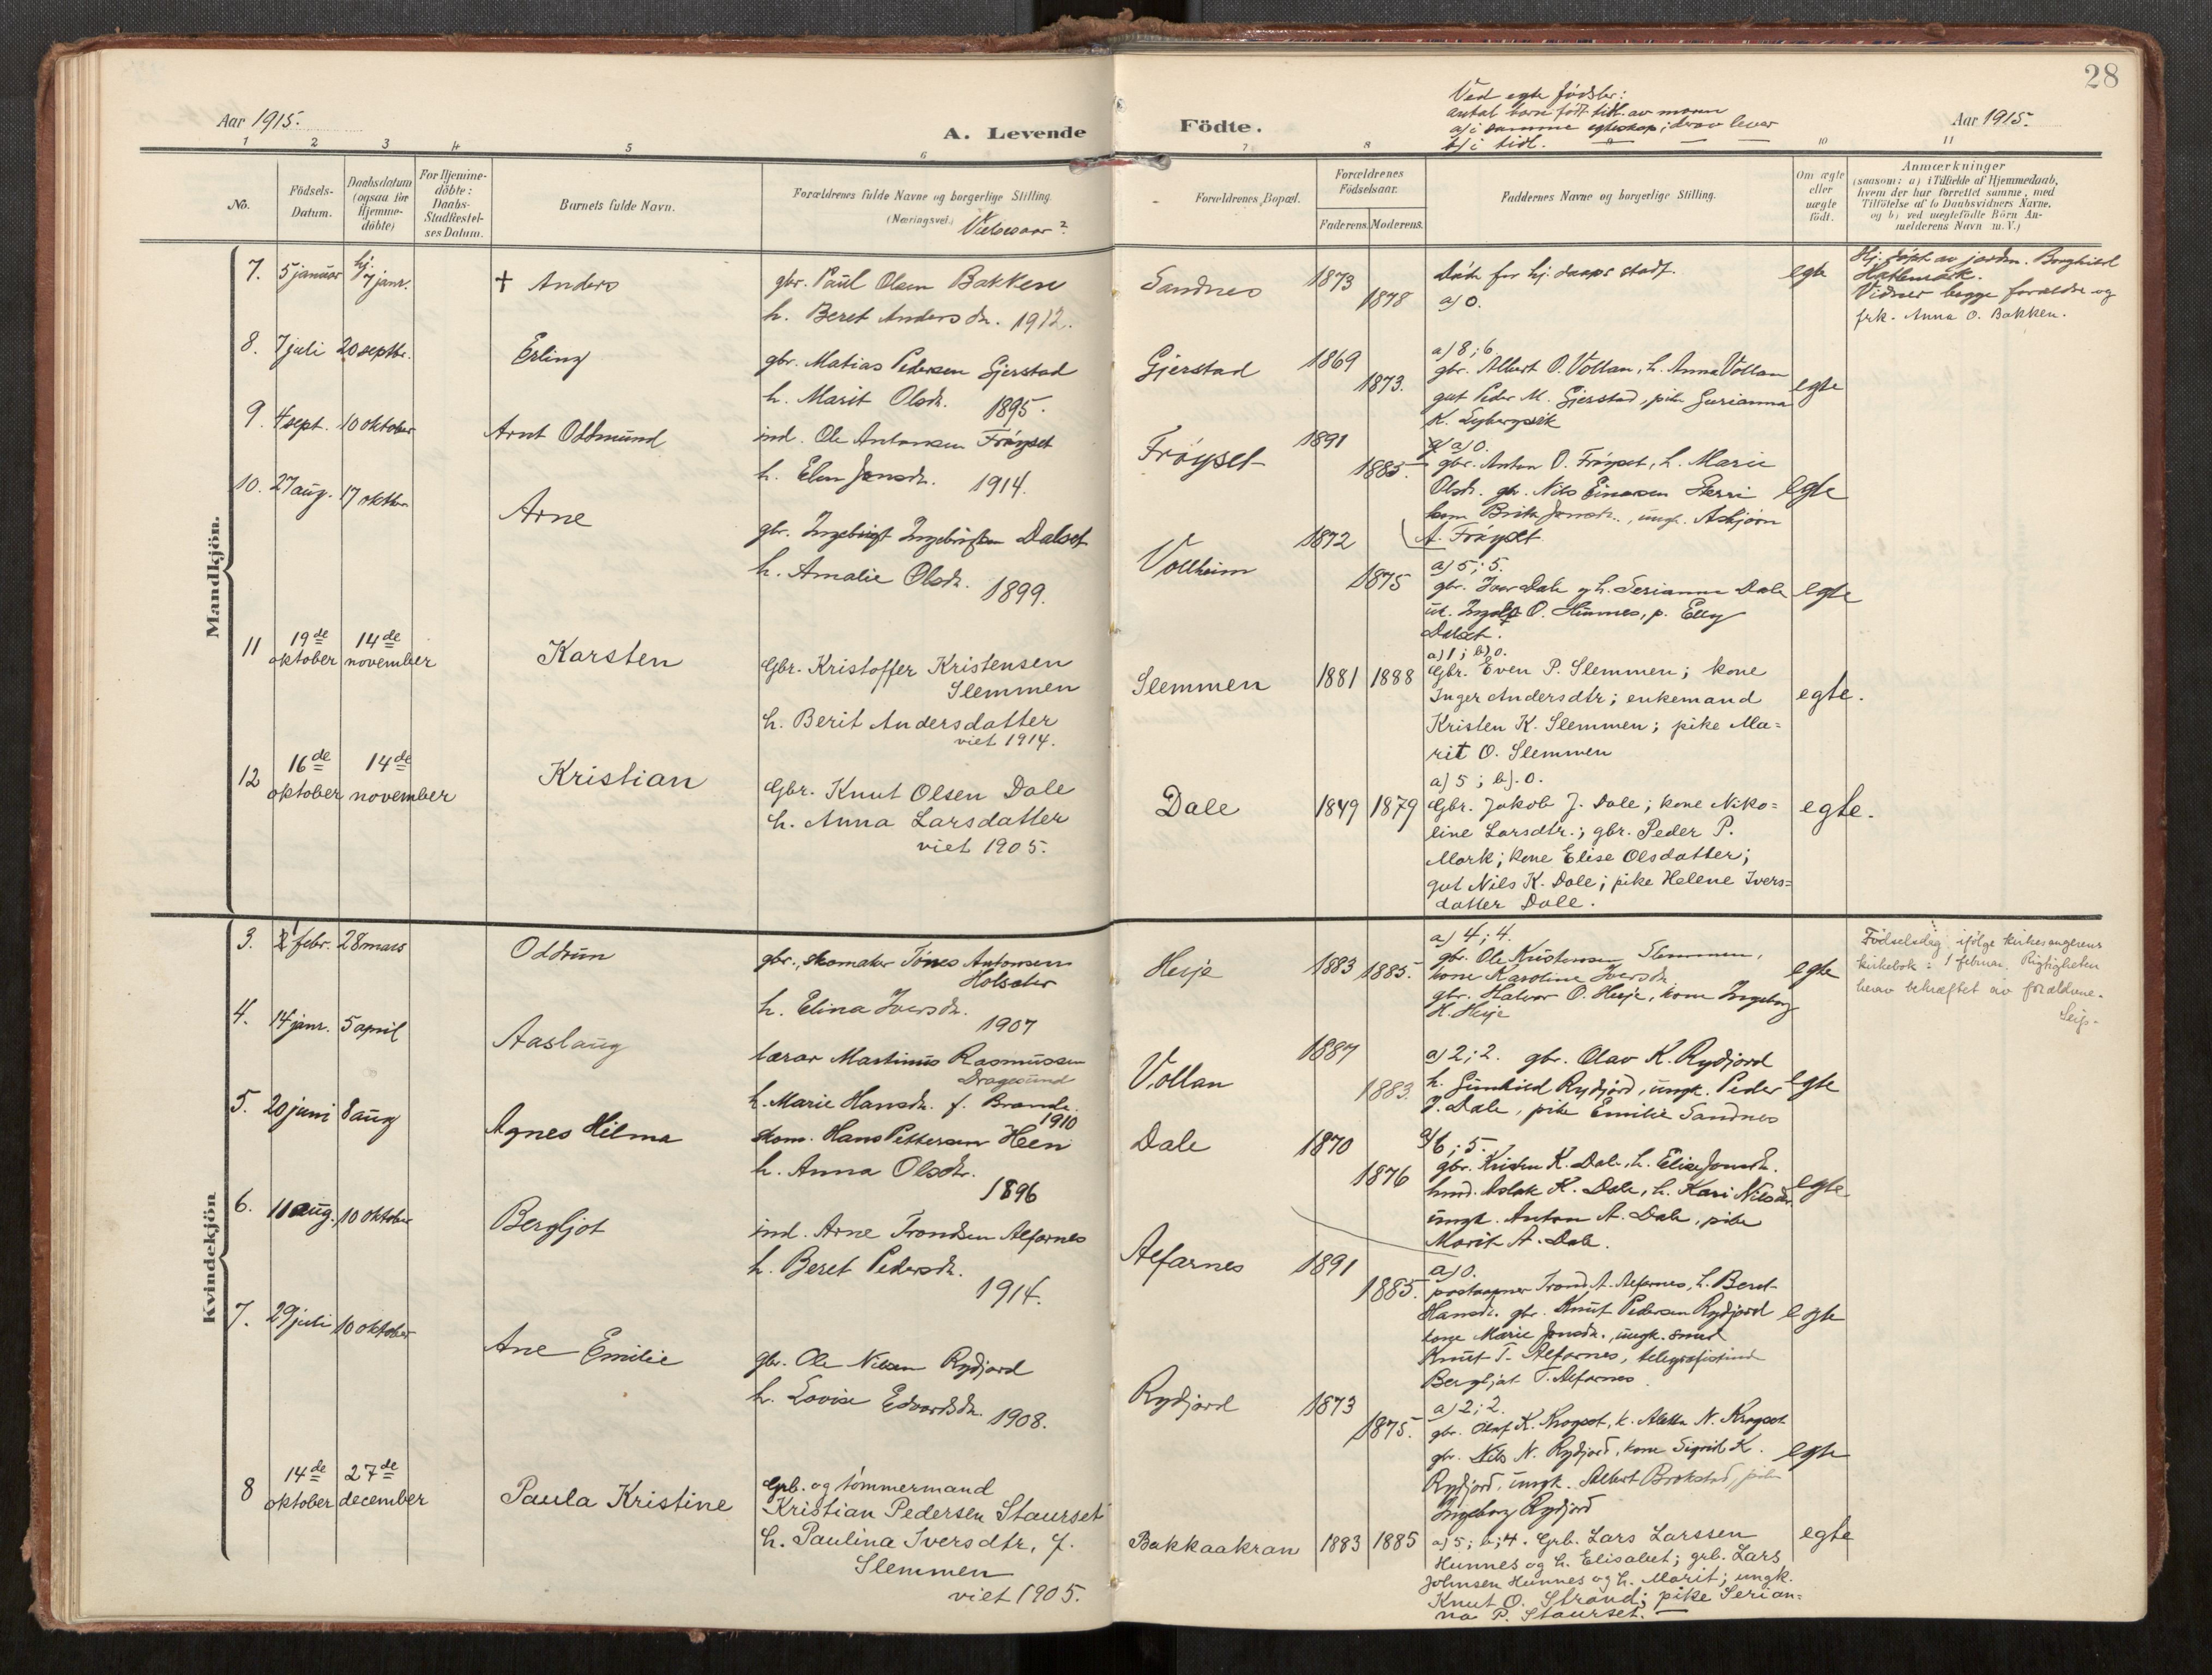 28
Aar 1915.
A. Levende
Födte.
Ved egte födsler:
antal barn födt tidl. av moren
a) i samme egteskap; derav lever
b) i tidl. — — —
Aar 1915.
1 2 3 4 5 6 7 8 9 10 11
No.
Födsels-
Datum.
Daabsdatum
(ogsaa for
Hjemme-
döbte)
For Hjemme-
döbte:
Daabs-
Stadfestel-
ses Datum.
Barnets fulde Navn.
Forældrenes fulde Navne og borgerlige Stilling.
(Næringsvei.) Vielsesaar?
Forældrenes Bopæl.
Forældrenes
Födselsaar.
Faderens. Moderens.
Faddernes Navne og borgerlige Stilling.
Om ægte
eller
uægte
födt.
Anmærkninger
(saasom: a) i Tilfælde af Hjemmedaab,
hvem der har forrettet samme, med
Tilföielse af to Daabsvidners Navne,
og b) ved uægtefödte Börn An-
melderens Navn m. V.)
Mandkjön.
7. 5 januar hj. 7 janr. † Anders
gbr. Paul Olsen Bakken
h. Beret Andersdr. 1912.
Sandnes 1873 1878
Döde før hj. daaps stadf.
a) 0.
egte
Hj. döpt av jordm. Borghild
Hattemark.
Vidner begge forældre og
frk. Anna O. Bakken.
8. 7 juli 20 septbr. Erling
gbr. Matias Pedersen Gjerstad
h. Marit Olsdr. 1895.
Gjerstad 1869 1873.
a) 8; 6
gbr. Albert O. Vollan, h. Anna Vollan
gut Peder M. Gjerstad, pike Gurianna
K.
egte
9. 4 sept. 10 oktober Arnt Oddmund
ind. Ole Antonsen Fröyset
h. Elen Jensdr. 1914.
Fröyset 1891 1885
a) 0.
gbr. Anton O. Fröyset, h. Marie
Olsdr. gbr. Nils Einarsen Sterri
kone Brit Jonsdr., ungk. Asbjörn
A. Fröyset
egte
10. 27 aug. 17 oktbr. Arne
gbr. Ingebrigt Ingebrigtsen Dalset
h. Amalie Olsdr. 1899.
Vollheim 1872 1875
a) 5; 5.
gbr. Ivar Dale og h. Serianna Dale
u. Ingolf O. Hunnes, p. Elly
Dalset.
egte
11 19de oktober 14de november Karsten
Gbr. Kristoffer Kristensen
Slemmen
h. Berit Andersdatter
viet 1914.
Slemmen 1881 1888
a) 1; b) 0.
Gbr. Even P. Slemmen; kone
Inger Andersdtr; enkemand
Kristen K. Slemmen; pike Ma=
rit O. Slemmen
egte.
12 16de oktober 14de november Kristian
Gbr. Knut Olsen Dale
h. Anna Larsdatter
viet 1905.
Dale 1849 1879
a) 5; b). 0.
Gbr. Jakob J. Dale; kone Niko=
line Larsdtr.; gbr. Peder P.
Mork; kone Elise Olsdatter;
gut Nils K. Dale; pike Helene Ivers=
datter Dale.
egte.
Kvindekjön
3. 1 febr. 28 mars Oddrun
gbr., skomaker Tönes Antonsen
Holsæter
h. Elina Iversdr.
1907
Hesje 1883 1885.
a) 4; 4.
gbr. Ole Kristensen Slemmen,
kone Karoline Iversdr.
gbr. Halvor O. Hesje, kone Ingeborg
H. Hesje
egte
Födselsdag ifölge kirkesangerens
kirkebok: 1 februar. Rigtigheten
herav bekræftet av forældrene.
4. 14 janr. 5 april Aaslaug
lærar Martinus Rasmussen
Dragesund
h. Marie Hansdr. f. Brande.
1910
Vollan 1887 1883.
a) 2; 2. gbr. Olav K. Rydjord
h. Gunhild Rydjord, ungk. Peder
J. Dale, pike Emilie Sandnes
egte
5. 20 juni 8 aug Agnes Hilma
skom. Hans Pettersen Heen
h. Anna Olsdtr.
1896
Dale 1870 1876
a) 6; 5.
gbr. Kristen K. Dale, h. Elise Jonsdr.
hmd. Aslak K. Dale, h. Kari Nilsdtr.
ungk. Anton A. Dale, pike
Marit A. Dale.
egte
6. 11 aug. 10 oktober Bergljot
ind. Arne Trondsen Alfarnes
h. Beret Pedersdr.
1914.
Alfarnes 1891 1885.
a) 0.
postaapner Trond A. Alfarnes, h. Beret
Hansdr. gbr. Knut Pedersen Rydjord
kone Marie Jonsdr., ungk. smed
Knut T. Alfarnes, telegrafistinde
Bergljot T. Alfarnes.
egte
7. 29 juli 10 oktober Ane Emilie
gbr. Ole Nilsen Rydjord
h. Lovise Edvardsdr. 1908.
Rydjord 1873 1875.
a) 2; 2.
gbr. Olaf K. Krogset, k. Aletta N. Krogset
gbr. Nils N. Rydjord, kone Sigrid K.
Rydjord, ungk. Albert Brokstad, pike
Ingeborg Rydjord
egte
8 14de oktober 27de december Paula Kristine
Grb. og tömmermand
Kristian Pedersen Staurset
h. Paulina Iversdtr, f.
Slemmen
viet 1905.
Bakkaakran 1883 1885
a) 5; b; 4. Grb. Lars Larssen
Hunnes og h. Elisabet; grb. Lars
Johnsen Hunnes og h. Marit; ungk.
Knut O. Strand; pike Serian=
na P. Staurset. —
egte